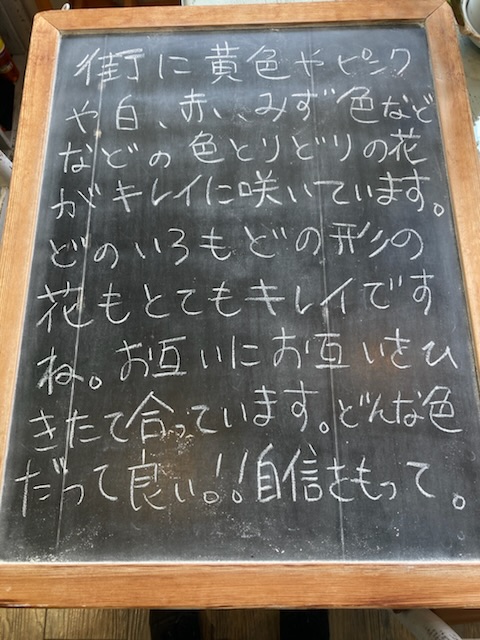 街に黄色やピンク
や白、赤い、みず色など
などの色とりどりの花
がキレイに咲いています。
どのいろもどの形の
花もとてもキレイです
ね。お互いにお互いをひ
きたて合っています。どんな色
だって良い!!自信をもって。